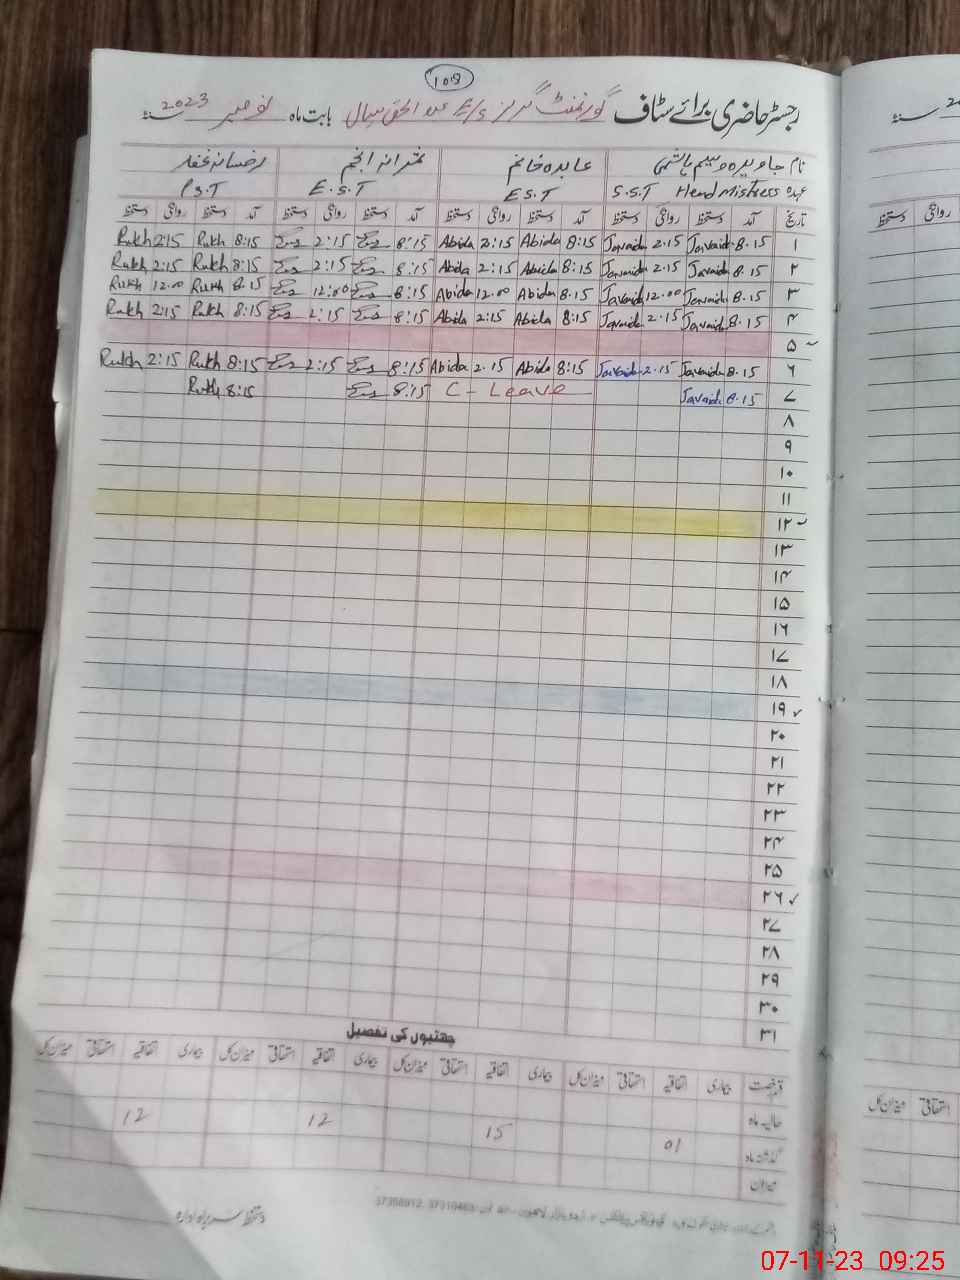 108
رجسٹر حاضری برائے سٹاف گورنمنٹ گرلز E/S عبدالحق سیال بابت ماہ نومبر 2023 سنہ
نام جاویدہ وسیم ہاشمی عابدہ خانم انجم رخسانہ غفار
عہدہ S.S.T Head Mistress E.S.T E.S.T P.S.T
تاریخ آمد دستخط روانگی دستخط آمد دستخط روانگی دستخط آمد دستخط روانگی دستخط آمد دستخط روانگی دستخط
۱ 8.15 Javaid 2.15 Javaid 8:15 Abida 2:15 Abida 8:15 2:15 8:15 Rukh 2:15 Rukh
۲ 8.15 Javaid 2.15 Javaid 8:15 Abida 2:15 Abida 8:15 2:15 8:15 Rukh 2:15 Rukh
۳ 8.15 Javaid 12.00 Javaid 8.15 Abida 12.00 Abida 8:15 12:00 8.15 Rukh 12.00 Rukh
۴ 8.15 Javaid 2.15 Javaid 8:15 Abida 2:15 Abida 8:15 2:15 8:15 Rukh 2:15 Rukh
۵
۶ 8.15 Javaid 2.15 Javaid 8:15 Abida 2.15 Abida 8:15 2:15 8:15 Rukh 2:15 Rukh
۷ 8.15 Javaid C - Leave 8:15 8:15 Rukh
۸
۹
۱۰
۱۱
۱۲
۱۳
۱۴
۱۵
۱۶
۱۷
۱۸
۱۹
۲۰
۲۱
۲۲
۲۳
۲۴
۲۵
۲۶
۲۷
۲۸
۲۹
۳۰
۳۱
چھٹیوں کی تفصیل
قسم رخصت بیماری اتفاقیہ استحقاقی میزان کل بیماری اتفاقیہ استحقاقی میزان کل بیماری اتفاقیہ استحقاقی میزان کل بیماری اتفاقیہ استحقاقی میزان کل
حالیہ ماہ
گذشتہ ماہ 01 15 12 12
میزان
دستخط سربراہ ادارہ
07-11-23 09:25